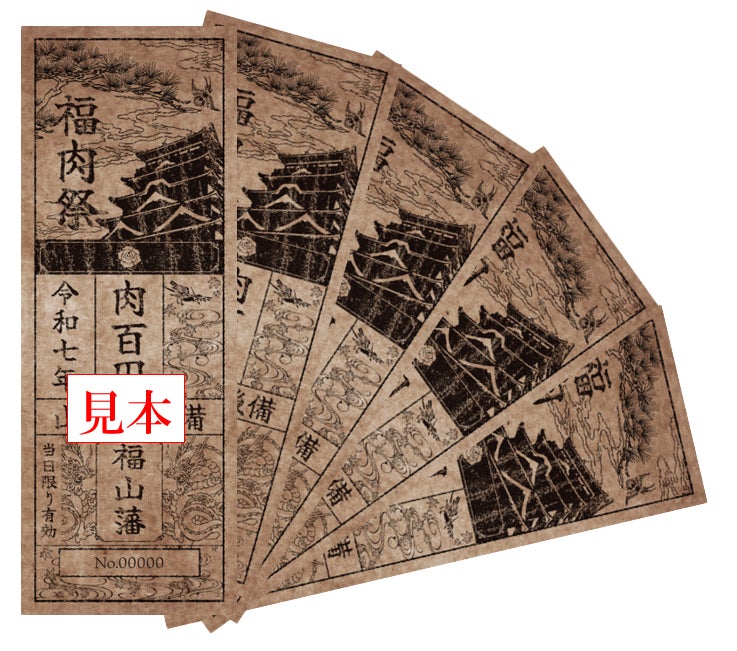 福肉祭
令和七年
肉百円
備
見本
福山藩
当日限り有効
No.00000
福
肉
備
福
備
福
備
福
備